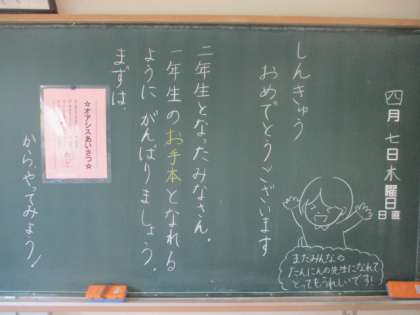 四月七日木曜日
日直
しんきゅう
おめでとうございます
二年生となったみなさん。
一年生のお手本となれる
ように がんばりましょう。
まずは、
☆オアシスあいさつ☆
からやってみよう！
またみんなの
たんにんの先生になれて
とってもうれしいです！